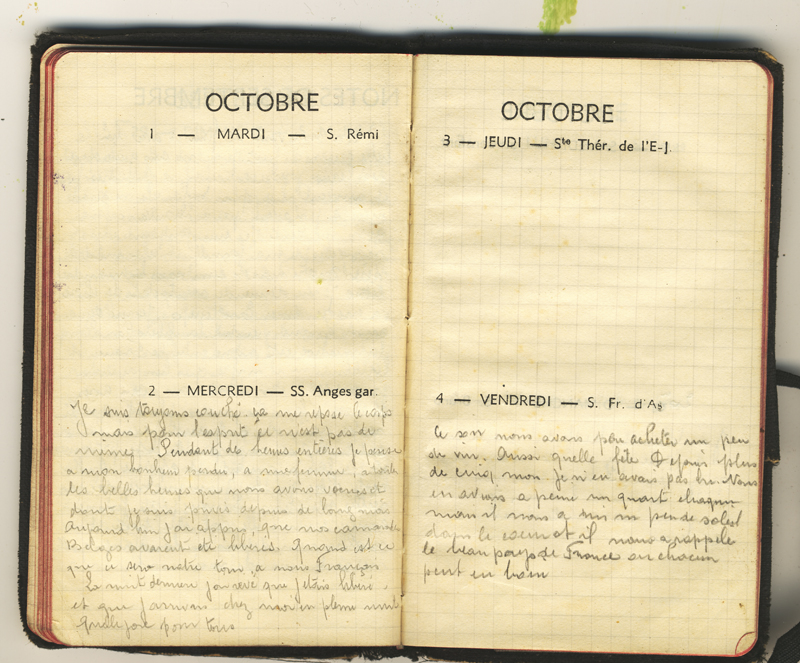 OCTOBRE
1 — MARDI — S. Rémi
2 — MERCREDI — SS. Anges gar.
Je suis toujours couché. ça me repose le corps
mais pour l'esprit ce n'est pas de
meme. Pendant des heures entières je pense
a mon bonheur perdu, a ma femme, a toutes
les belles heures que nous avons vecues et
dont je suis privé depuis de longs mois
Aujourd'hui j'ai appris, que nos camarades
Belges avaient été libérés. Quand est ce
que ce sera notre tour, a nous Français
La nuit derniere j'ai rêvé que j'étais libéré
et que j'arrivais chez moi en pleine nuit
Quelle joie pour tous
OCTOBRE
3 — JEUDI — Ste Thér. de l'E-J.
4 — VENDREDI — S. Fr. d'As
Ce soir nous avons pu acheter un peu
du vin. Aussi quelle fête Depuis plus
de cinq mois je n'en avais pas bu. Nous
en avions a peine un quart chaqun
mais il nous a mis un peu de soleil
dans le coeur et il nous a rappele
le beau pays de France ou chacun
peut en boire